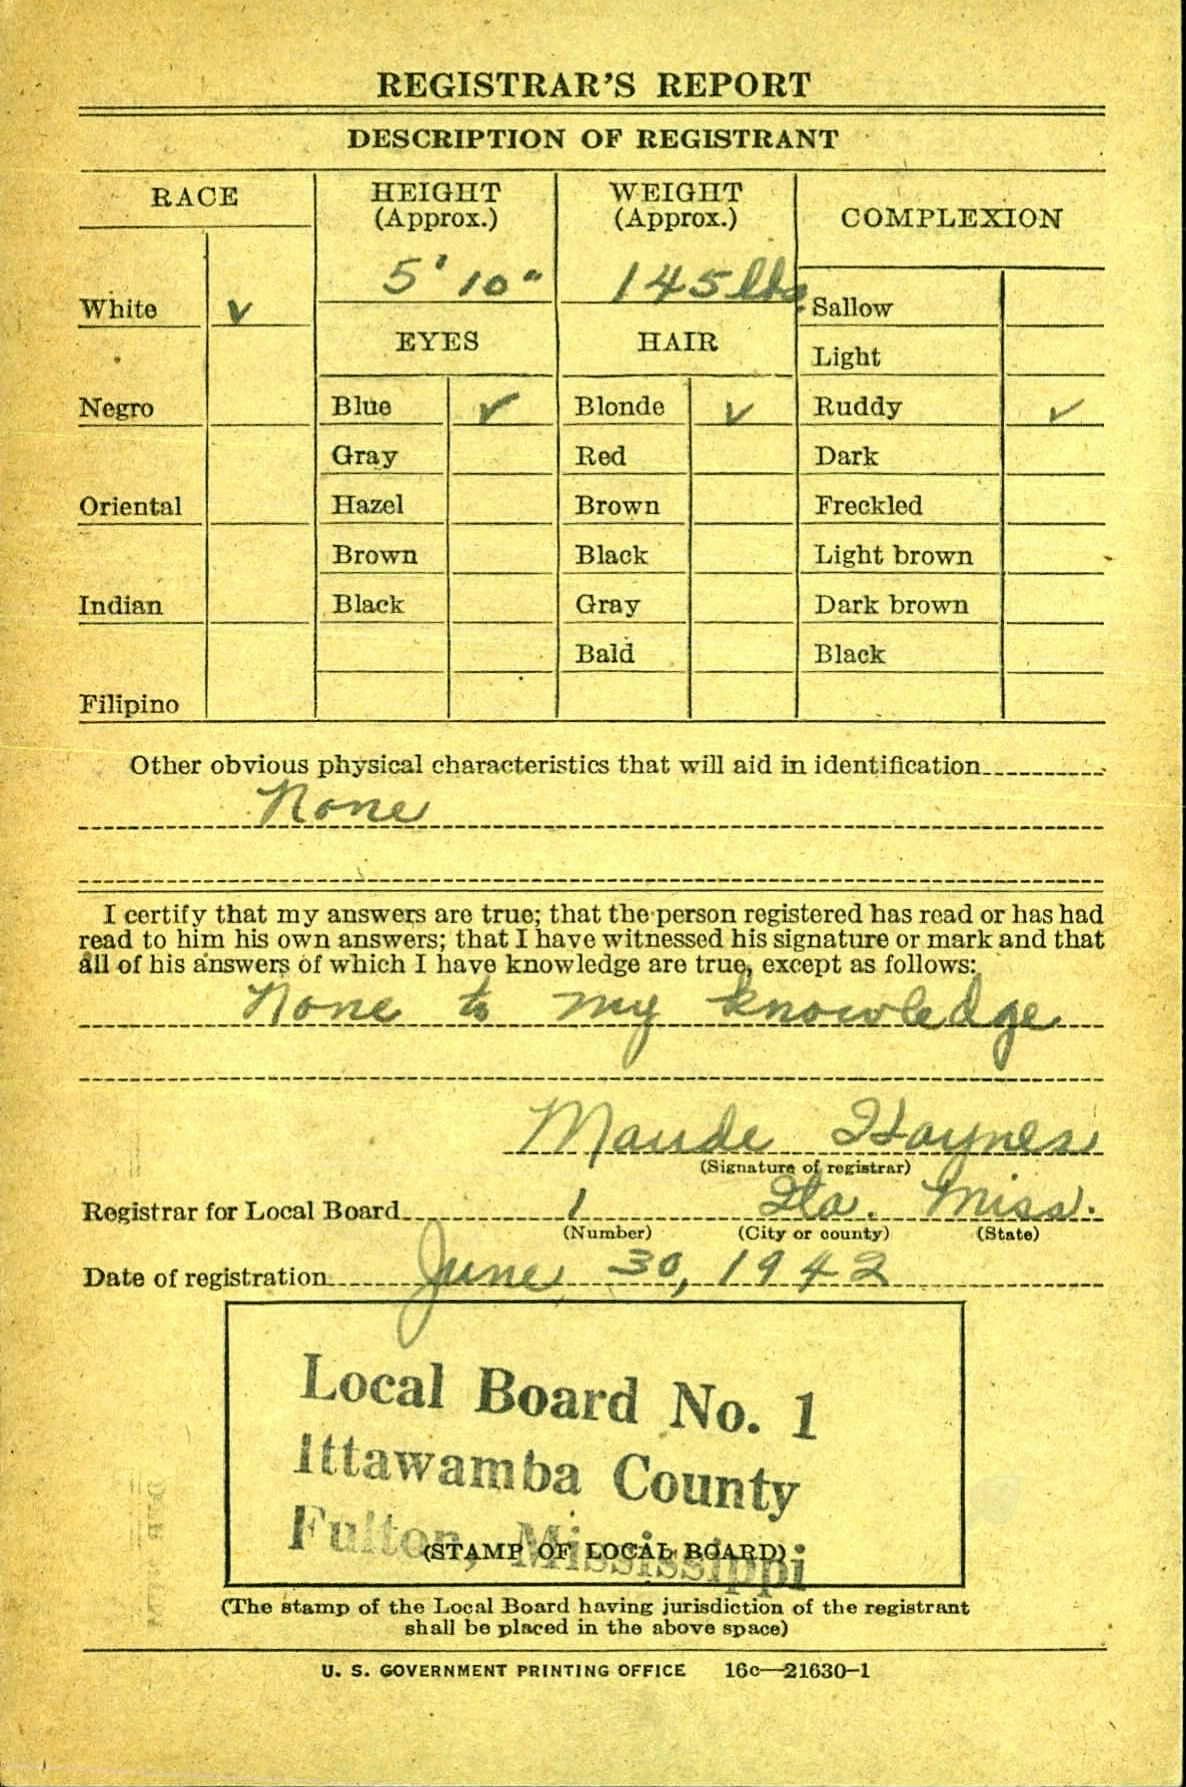 REGISTRAR'S REPORT
DESCRIPTION OF REGISTRANT
RACE
HEIGHT
(Approx.)
WEIGHT
(Approx.)
COMPLEXION
5' 10"
145 lbs.
White ✓
Sallow
EYES
HAIR
Light
Negro
Blue ✓
Blonde ✓
Ruddy ✓
Gray
Red
Dark
Oriental
Hazel
Brown
Freckled
Brown
Black
Light brown
Indian
Black
Gray
Dark brown
Bald
Black
Filipino
Other obvious physical characteristics that will aid in identification
None
I certify that my answers are true; that the person registered has read or has had
read to him his own answers; that I have witnessed his signature or mark and that
all of his answers of which I have knowledge are true, except as follows:
None to my knowledge
Maude Haynes
(Signature of registrar)
Registrar for Local Board 1 Ita. Miss.
(Number) (City or county) (State)
Date of registration June 30, 1942
Local Board No. 1
Ittawamba County
Fulton, Mississippi
(STAMP OF LOCAL BOARD)
(The stamp of the Local Board having jurisdiction of the registrant
shall be placed in the above space)
U. S. GOVERNMENT PRINTING OFFICE 16c—21630-1